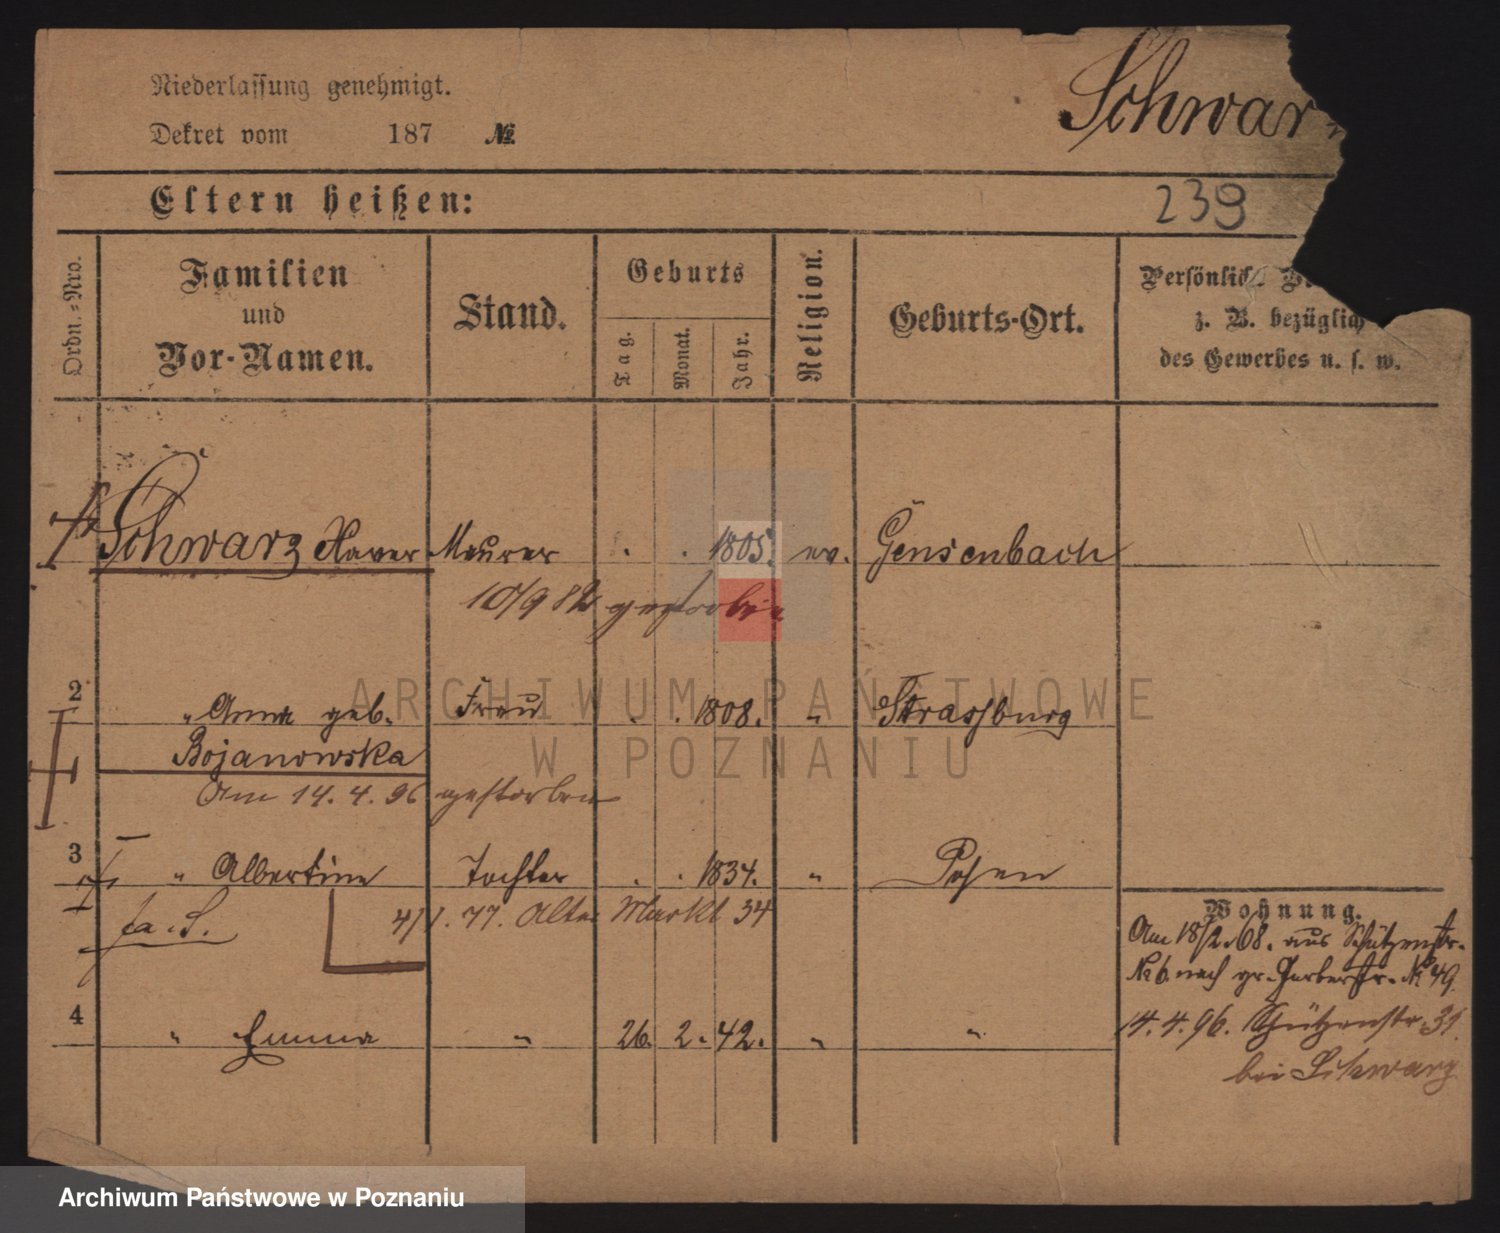 Niederlassung genehmigt.
Schwar
Dekret vom 187 №
Eltern heißen:
239
Ordn.-Nro.
Familien und Vor-Namen.
Stand.
Geburts
Tag.
Monat.
Jahr.
Religion.
Geburts-Ort.
Persönliche
z. B. bezüglich
des Gewerbes u. s. w.
Schwarz Xaver Maurer . . 1805. ev. Gensenbach
10/9 82 gestorben
2 " Anna geb. Frau . . 1808. " Strassburg
Bojanowska
Am 14. 4. 96 gestorben
3 " Albertine Tochter . . 1834. " Posen
fa. S. 4/1. 77. Alter Markt 34
Wohnung.
Am 18/2. 68. aus Schützenstr.
No 6. nach gr. Gerberstr. No 49.
4 " Emma " 26. 2. 42. " "
14. 4. 96. Schützenstr. 31.
bei Schwarz
ARCHIWUM PAŃSTWOWE
W POZNANIU
Archiwum Państwowe w Poznaniu